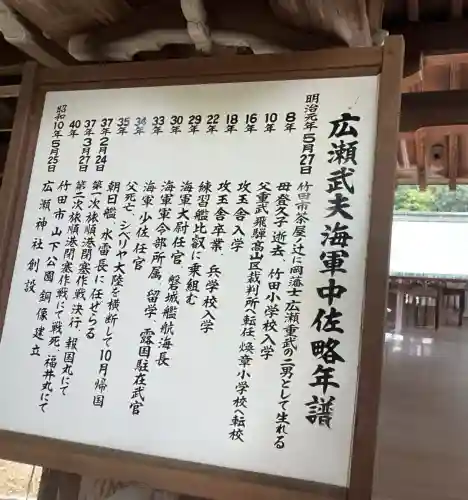 広瀬武夫海軍中佐略年譜
明治元年5月27日 竹田市茶屋ノ辻に岡藩士広瀬重武の二男として生れる
8年 母登久子逝去、竹田小学校入学
10年 父重武飛騨高山区裁判所へ転任、煥章小学校へ転校
16年 攻玉舎入学
18年 攻玉舎卒業、兵学校入学
22年 練習艦比叡に乗組む
29年 海軍大尉任官 磐城艦航海長
30年 海軍軍令部所属、留学 露国駐在武官
33年 海軍少佐任官
34年
35年 父死亡、シベリヤ大陸を横断して10月帰国
37年2月24日 朝日艦、水雷長に任ぜらる
37年3月27日 第一次旅順港閉塞作戦決行、報国丸にて
第二次旅順港閉塞作戦にて戦死、福井丸にて
40年 竹田市 山下公園 銅像建立
昭和10年5月25日 広瀬神社創設